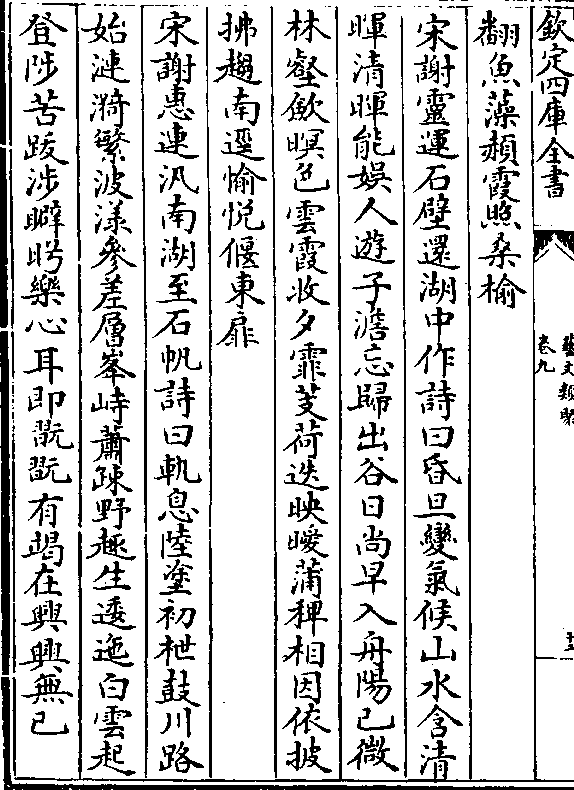 欽定四庫全書
藝文類聚
卷九
翻魚藻赬霞照桑榆
宋謝靈運石壁還湖中作詩曰昏旦變氣候山水含清
暉清暉能娛人遊子澹忘歸出谷日尚早入舟陽已微
林壑歛暝色雲霞收夕霏芰荷迭映曖蒲稗相因依披
拂趨南逕愉悅偃東扉
宋謝惠連汎南湖至石帆詩曰軌息陸塗初枻鼓川路
始漣漪繁波漾參差層峯峙蕭疎野趣生逶迤白雲起
登陟苦跋涉㘖盻樂心耳即翫翫有竭在興興無已